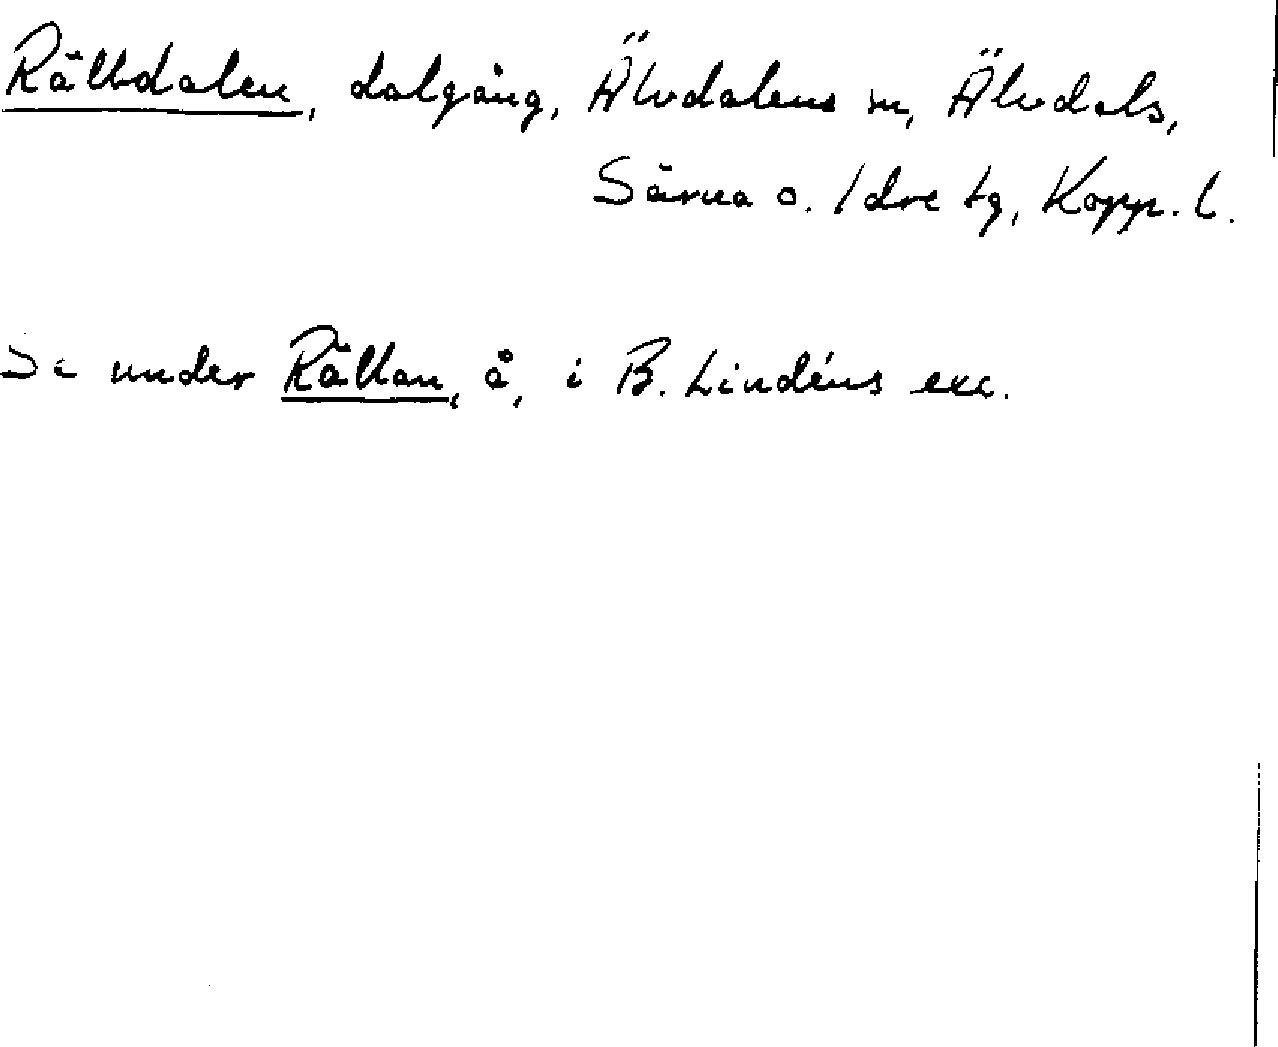 Rälldalen, dalgång, Älvdalens sn, Älvdals,
Särna o. Idre tg, Kopp. l.
Se under Rällan, å, i B. Lindéns exc.